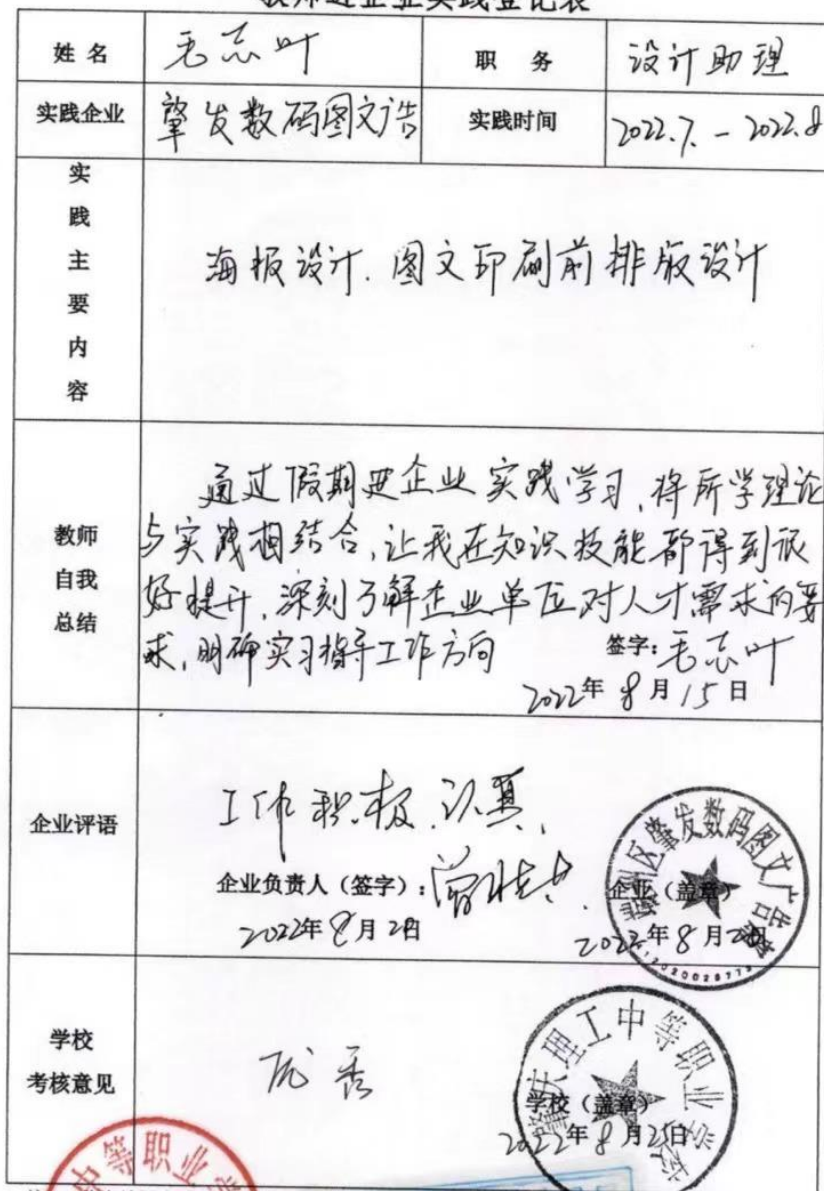 教师进企业实践登记表
姓 名 毛志叶 职 务 设计助理
实践企业 肇发数码图文广告 实践时间 2022.7. - 2022.8
实践主要内容
海报设计. 图文印刷前排版设计
教师自我总结
通过假期进企业实践学习,将所学理论
与实践相结合,让我在知识技能都得到很
好提升,深刻了解企业单位对人才需求的要
求,明确实习指导工作方向
签字: 毛志叶
2022年 8月15日
企业评语
工作积极.认真.
企业负责人(签字):
企业(盖章)
2022年8月20日
2022年8月20日
区肇发数码图文广告
学校考核意见
优秀
肇庆理工中等职业学校
学校(盖章)
2022年8月25日
中等职业学